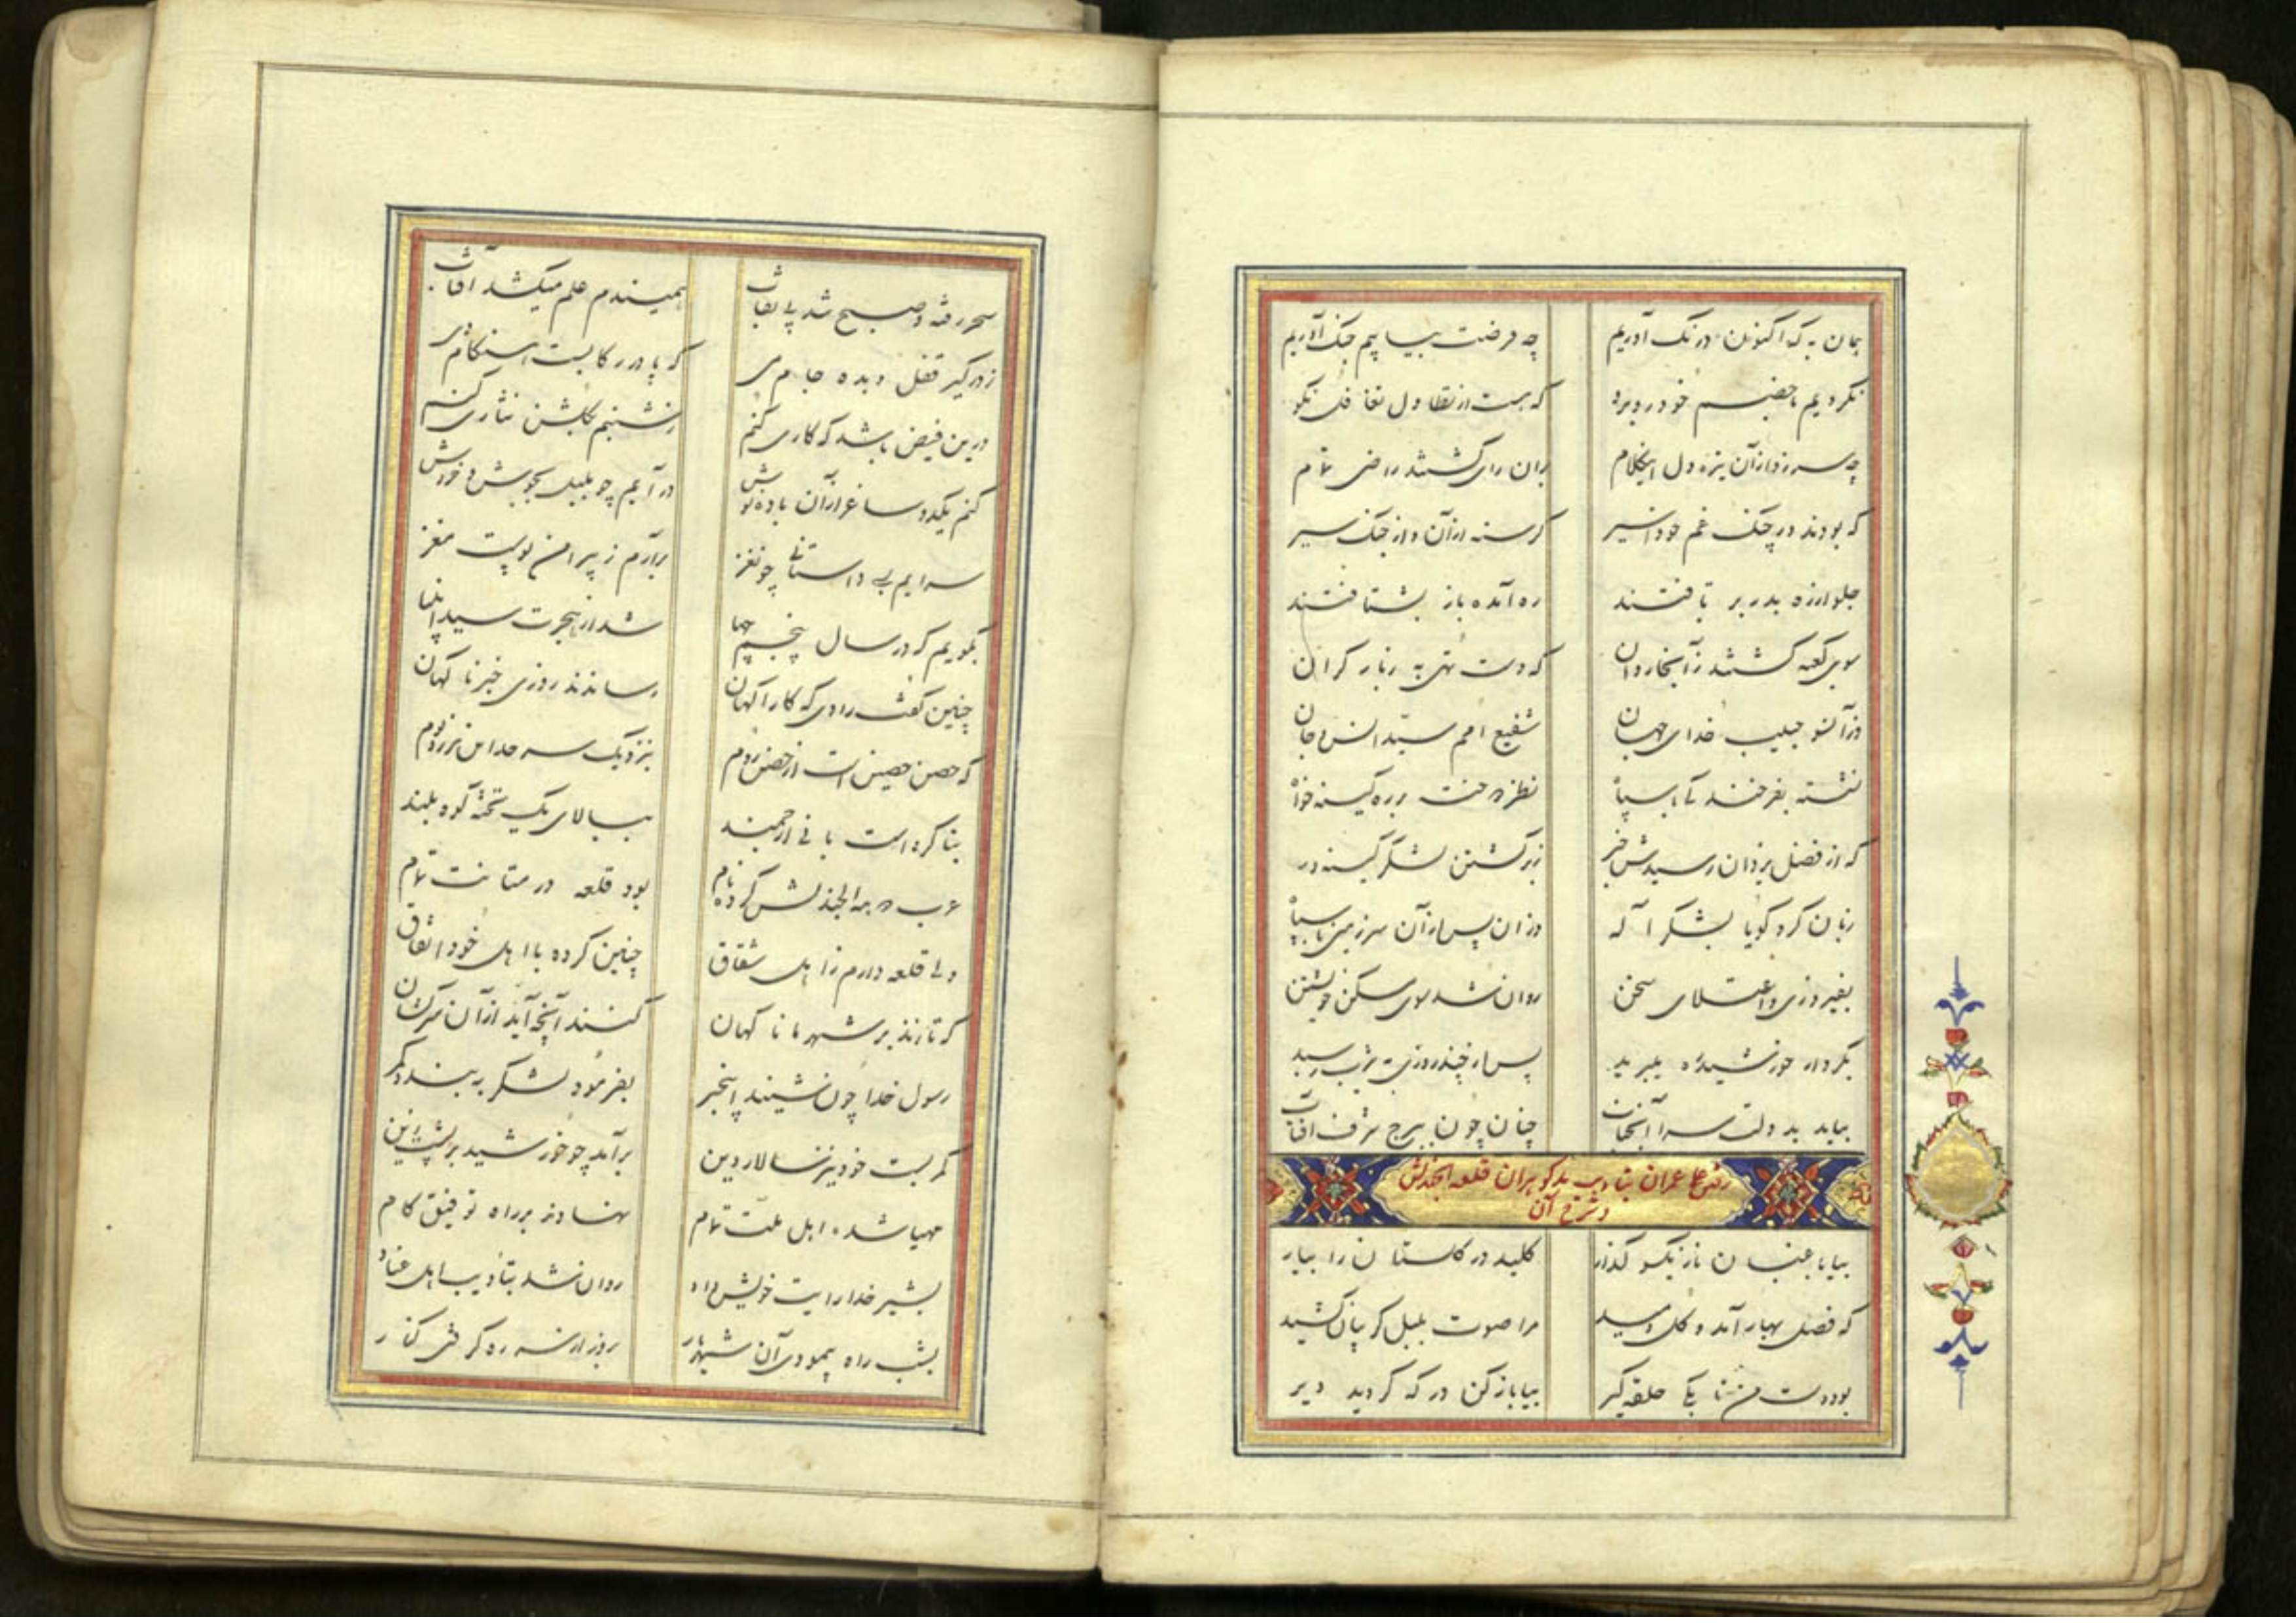 همان به که اکنون درنگ آوریم چه فرصت بیابیم جنگ آوریم
نکردیم با خصم خود روبرو که هست از تطاول تغافل نکو
چه سر زد از آن تیره دل اینکلام بران رای گشتند راضی تمام
که بودند در چنگ غم خود اسیر گرسنه از آن و از جنگ سیر
جلو از ره بدر بر تافتند ره آمده باز بشتافتند
سوی مکه گشتند زآنجا روان که دست تهی به ز بار گران
وز آنسو حبیب خدای جهان شفیع امم سیّد انس و جان
نشسته بفرخندگی با سپاه نظر دوخت بر ره کینه خواه
که از فضل یزدان رسیدش خبر ز برگشتن لشگر کینه ور
زبان کرد گویا بشکر اله وز ان پس از آن سرزمین با سپاه
بفیروزی و اعتلای سخن روان شد سوی مسکن خویشتن
بکردار خورشید ره میبرید پس از چند روزی به یثرب رسید
بیامد بدولت سرا آنجناب چنان چون ببرج شرف آفتاب
قلعه الجندلش
و شرح آن
بیا باغبان ناز یکسو گذار کلید در گلستان را بیار
که فصل بهار آمد و گل دمید مرا صوت بلبل گریبان کشید
بود دست من تا بکی حلقه گیر بیا باز کن در که گردید دیر
سحر رفته و صبح شد بی نقاب همیندم علم میکشد آفتاب
ز در گیر قفل و بده جام می که پا در رکابست هنگام دی
درین فیض باشد که کاری کنم ز شبنم بگلشن نثاری کنم
کنم یکدو ساغر از آن باده نوش در آیم چو بلبل بجوش و خروش
سرایم یکی داستانی چو نغز برآرم ز پیرامن پوست مغز
بگویم که در سال پنجم چها شد از هجرت سید انبیا
چنین گفت راوی که کارآگهان رساندند روزی خبر ناگهان
که حصن حصین است از حصن روم بنزدیک سر حد این مرز و بوم
بنا کرده است بانی ارجمند ببالای یک تخته کوه بلند
عرب دومه الجندلش کرده نام بود قلعه در متانت تمام
ولی قلعه دارم ز اهل شقاق چنین کرده با اهل خود اتفاق
که تازند بر شهر ما ناگهان کنند آنچه آید از آن سرکشان
رسول خدا چون شنید اینخبر بفرمود لشکر به بندد کمر
کمر بست خود نیز سالار دین برآمد چو خورشید بر پشت زین
مهیا شده اهل ملّت تمام نهادند بر راه توفیق کام
بشیر خدا رایت خویش داد روان شد بتادیب اهل عناد
بشب راه پیمودی آن شهریار بروز از سر ره گرفتی کنار